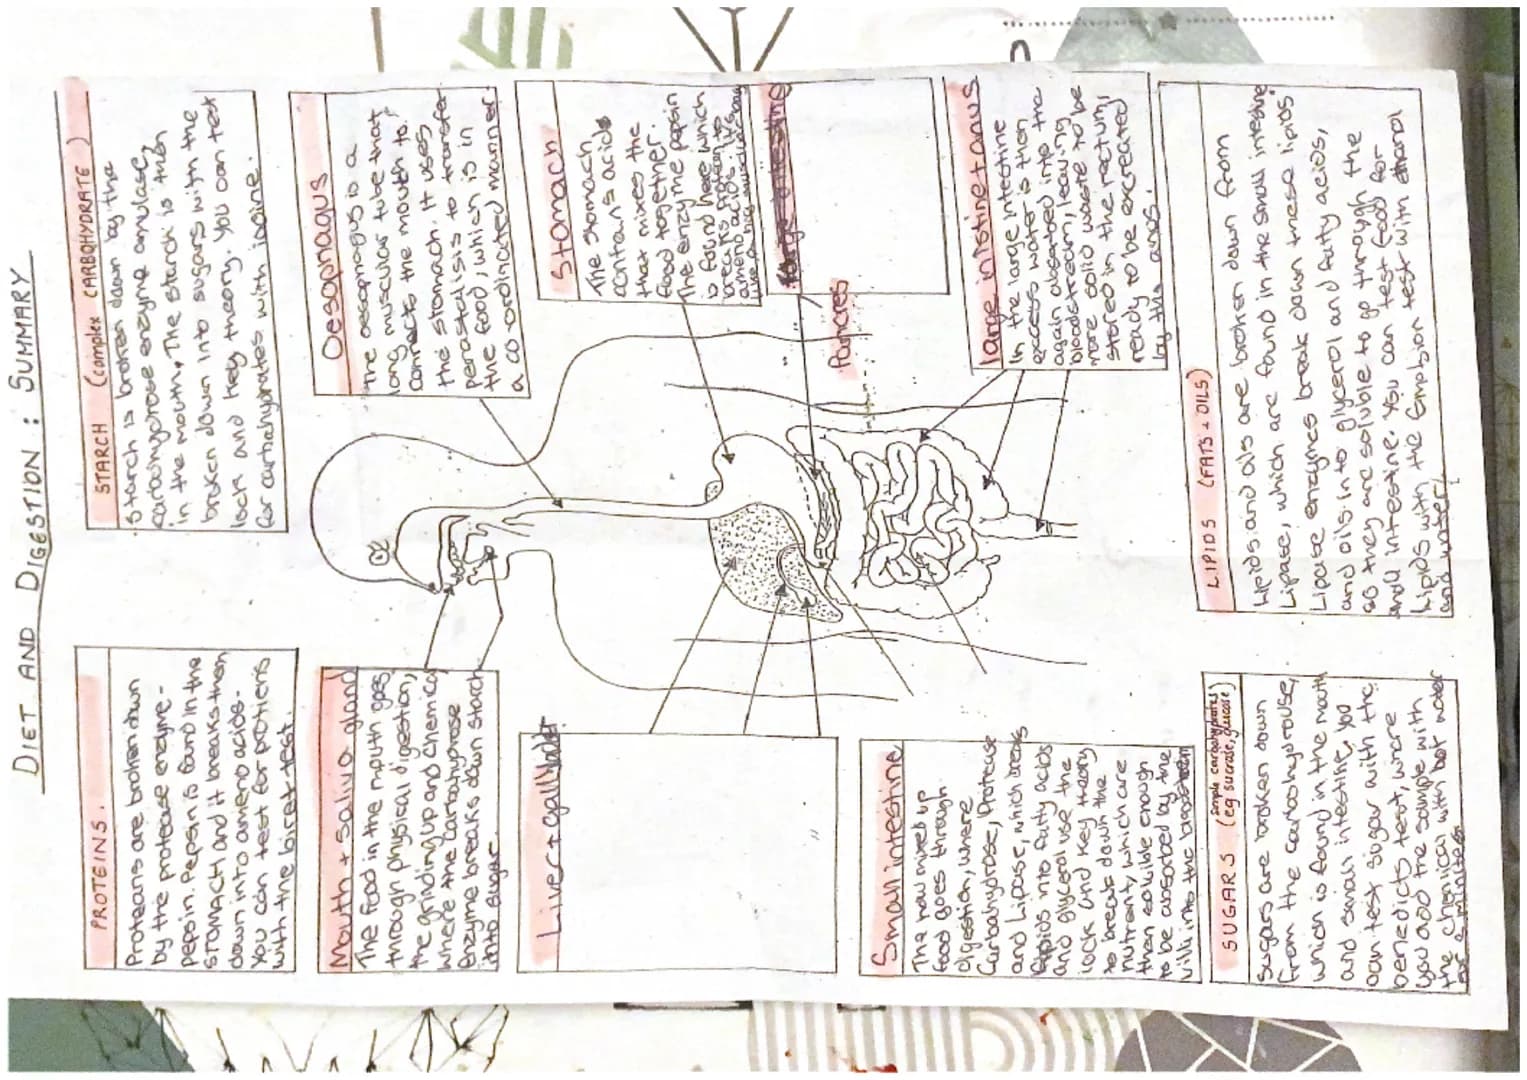 DIET AND DIGESTION : SUMMARY
PROTEINS.
Proteans are broken down
by the protease enzyme -
pepsin. Pepsin is found in the
stomach and it breaks then
down into amieno acids.
You can test for potiens
with the biret test.
STARCH (complex CARBOHYDRATE)
Starch is broken down by the
carbohydrose enzyme amulase,
in the mouth. The starch is then
broken down into sugars with the
lock and key theory. You can test
for carbohydrates with iodine.
Mouth + Saliva gland
The food in the mouth goes
through physical digestion,
the grinding up and chemical
where the carbohydrase
enzyme breaks down starch
into sugar.
Oesophagus
The oesophagus is a
long muscular tube that
connects the mouth to,
the stomach. It uses
perastalsis to transfer
the food, which is in
a co-ordinacted mannor.
Liver + gallbladder
Stomach
The stomach
contains acids
that mixes the
food together.
The enzyme pepsin
is found here which
breaks protein to
amieno acids. Its
large intestine
Pancres
Small intestine
The now mixed up
food goes through
digestion, where
Carbohydrose, Protease
and Lipase, which breaks
lipids into fatty acids
and glycerol use the
lock and key theory
to break down the
nutrient, which are
then soluble enough
to be absorbed by the
villi into the bloodstream
large intistine + anus
In the large intestine
excess water is then
again absorbed into the
bloodstream, leaving
more solid waste to be
stored in the rectum,
ready to be excreated
by the anas.
SUGARS simple carbohydrates (eg sucrose, glucose)
Sugars are broken down
from the carbohydrouse,
which is found in the mouth
and small intestine, you
can test sugar with the
benedicts test, where
you add the sample with
the chemical with hot water
for 5 minutes
LIPIDS (FATS + OILS)
Lipids and oils are broken down from
Lipase, which are found in the small intestine
Lipase enzymes break down these lipids
and oils into glycerol and fatty acids,
so they are soluble to go through the
small intestine. You can test food for
lipids with the emulsion test with ethanol
and water.